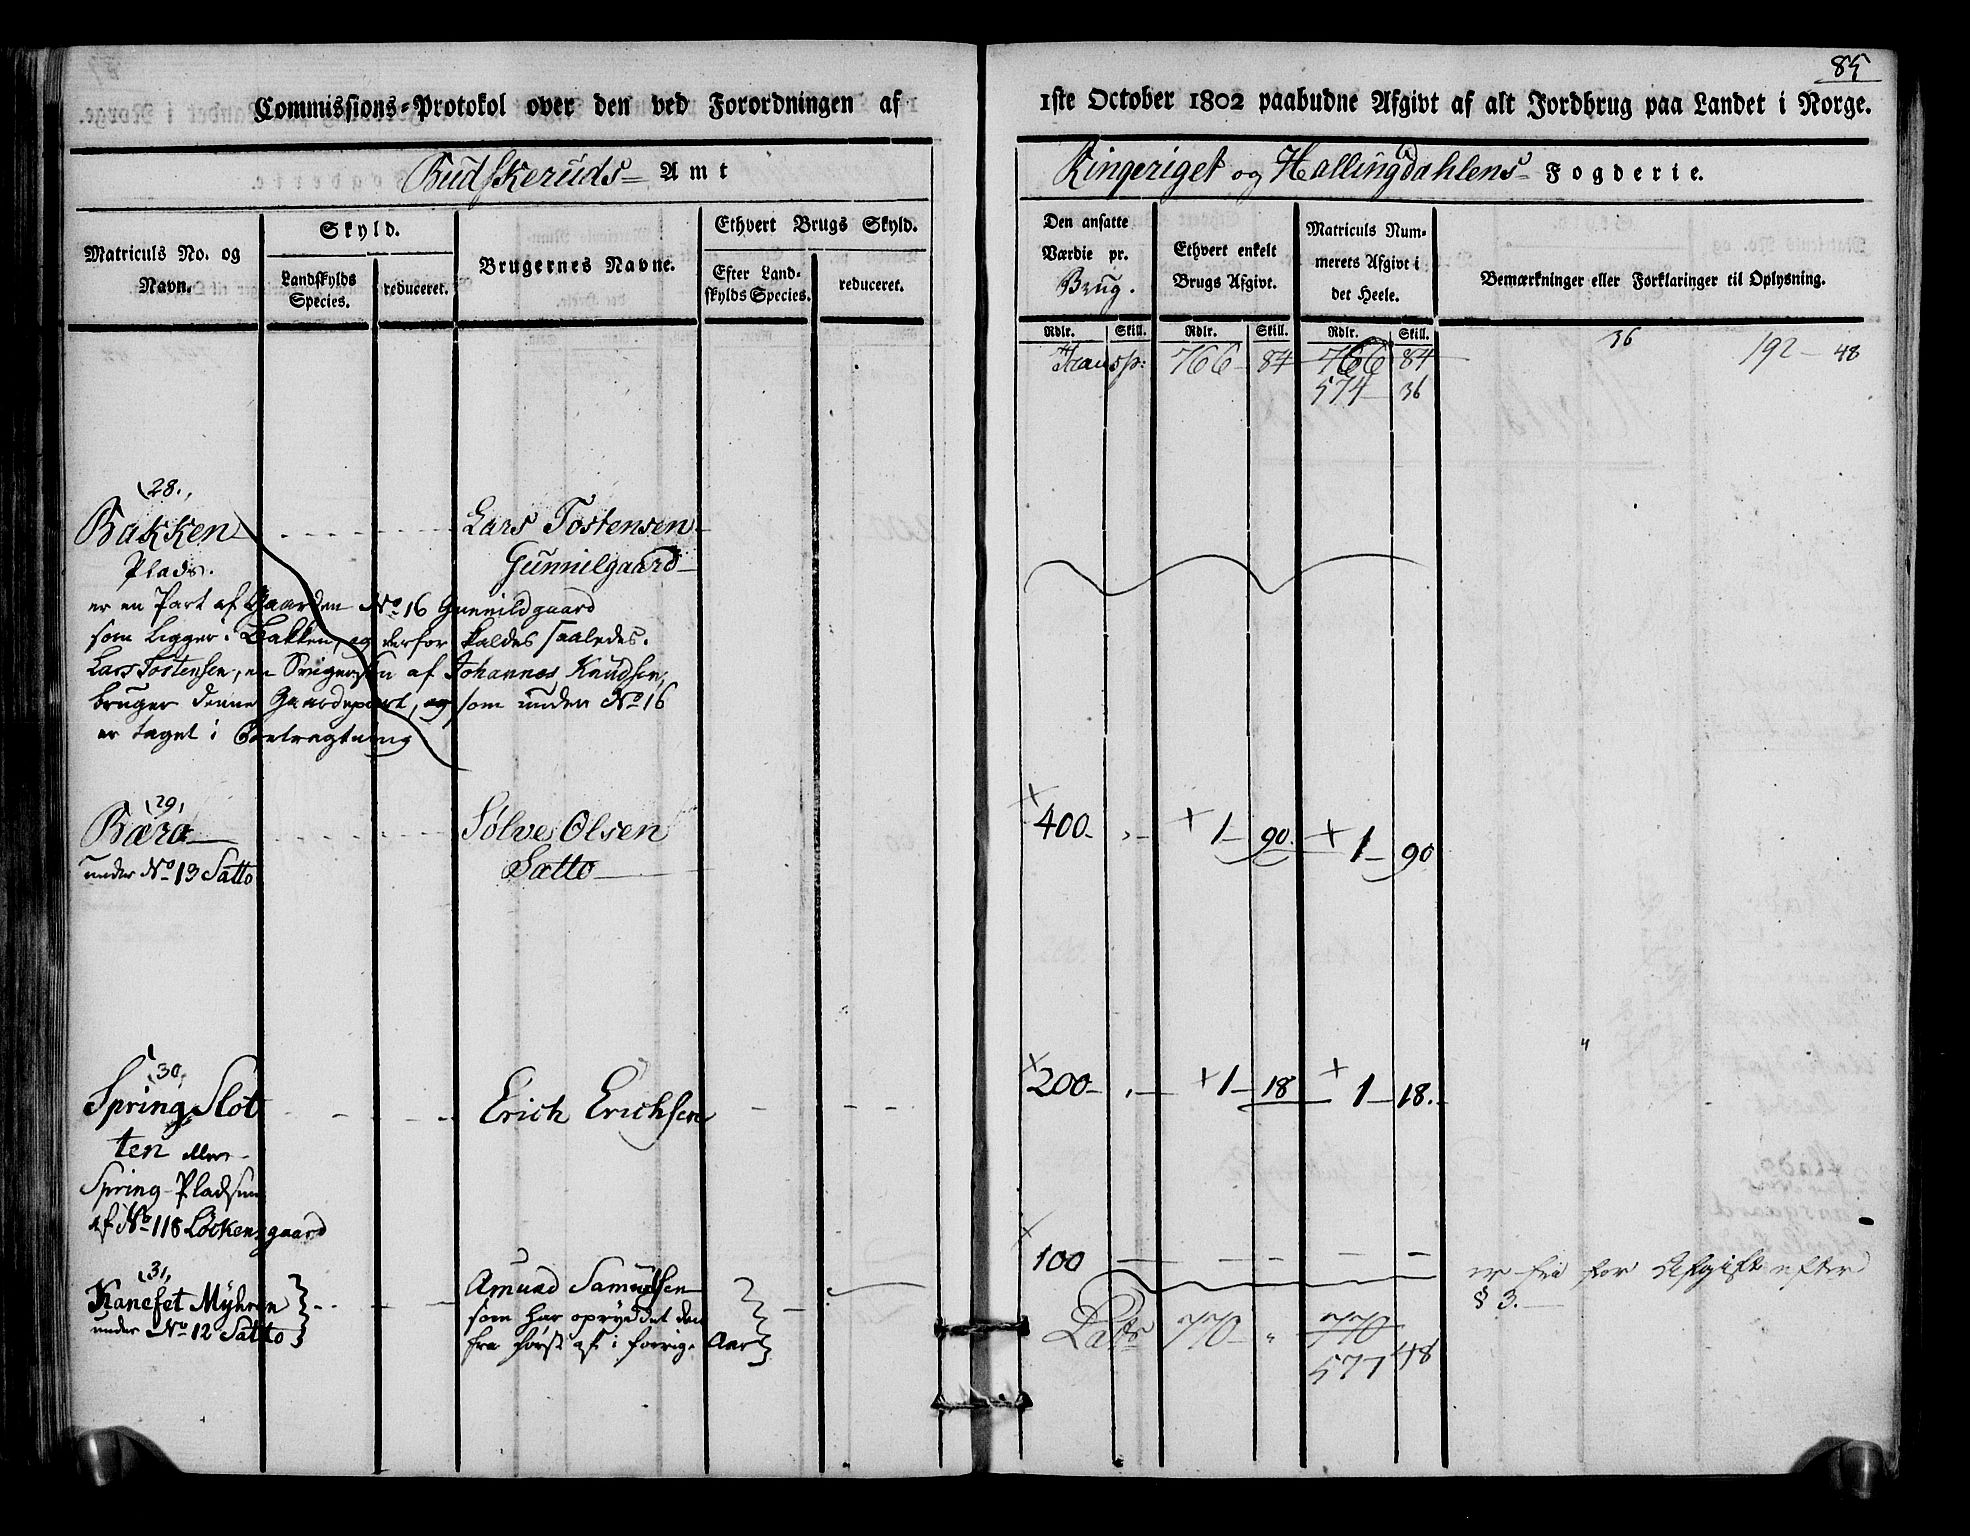 85
Commissions-Protokol over den ved Forordningen af 1ste October 1802 paabudne Afgivt af alt Jordbrug paa Landet i Norge.
Budskeruds Amt
Ringeriget og Hallingdahlens Fogderie.
Matriculs No. og Navn.
Skyld.
Landskylds Species.
reduceret.
Brugernes Navne.
Ethvert Brugs Skyld.
Efter Landskylds Species.
reduceret.
Den ansatte Værdie pr. Brug.
Ethvert enkelt Brugs Afgivt.
Matriculs Nummerets Afgivt i det Heele.
Bemærkninger eller Forklaringer til Oplysning.
Rdlr. Skill. Rdlr. Skill. Rdlr. Skill.
36
Transp: 766 84 766 84 192 - 48
574 36
28.
Bakken Lars Tostensen
Plads. Gunnilgaard
er en Part af Gaarden No 16 Gunnildgaard
som ligger i Bakken, og derfor kaldes saaledes.
Lars Tostensen, en Svigersøn af Johannes Knudsen,
bruger denne Gaardepart, og som under No 16
er taget i Betragtning
29,
Bæra Sølve Olsen 400 1 - 90. 1 - 90
under No 13 Satto Satto
30,
Spring Slot Erich Erichsen 200 1 - 18 1 - 18.
ten eller
Spring-Pladsen
af No 118 Løckensgaard
31,
Kanefet Myhren Amund Samuelsen 100 er fri for Afgift efter
under No 12 Satto som har opryddet den § 3.
fra først af i forrige Aar
Lats 770 " 770
577 48